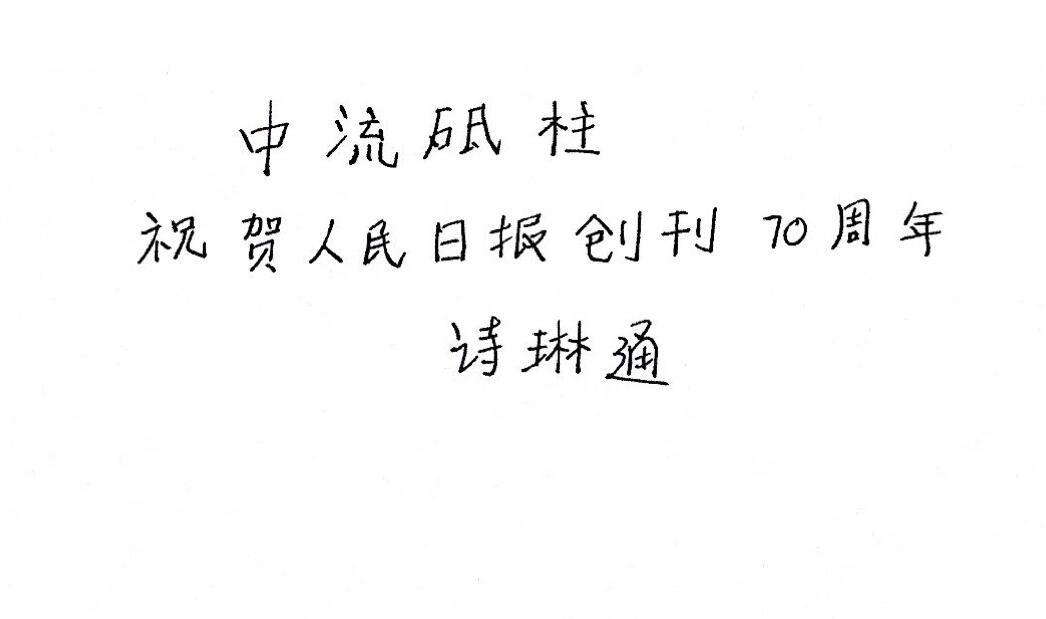 中流砥柱
祝贺人民日报创刊70周年
诗琳通